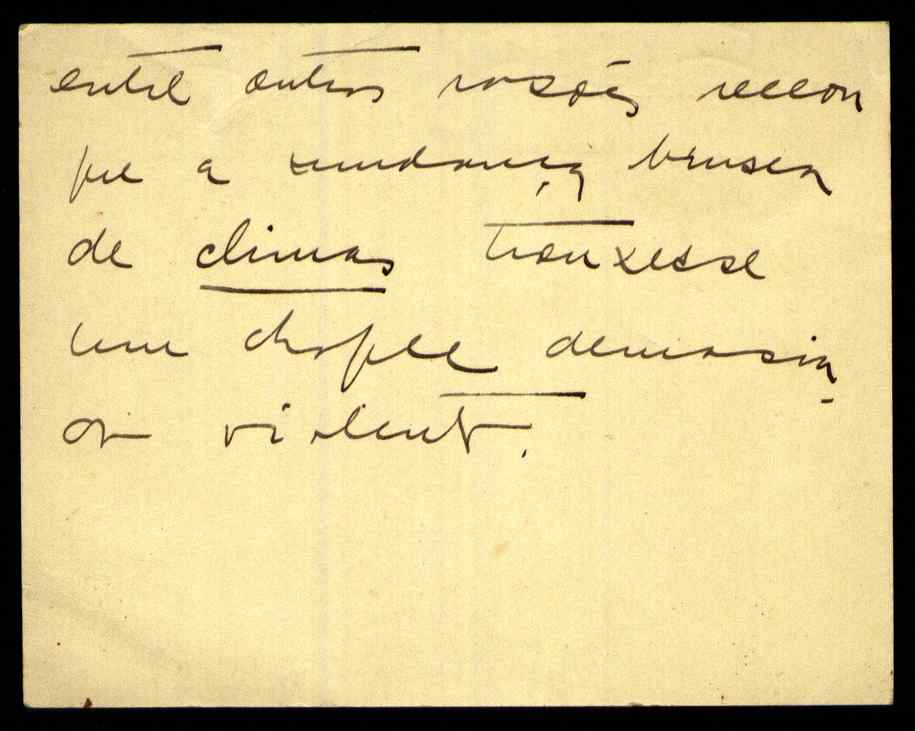 entre outras rasões receou
que a mudança brusca
de climas trouxesse
um choque demasia-
do violento.